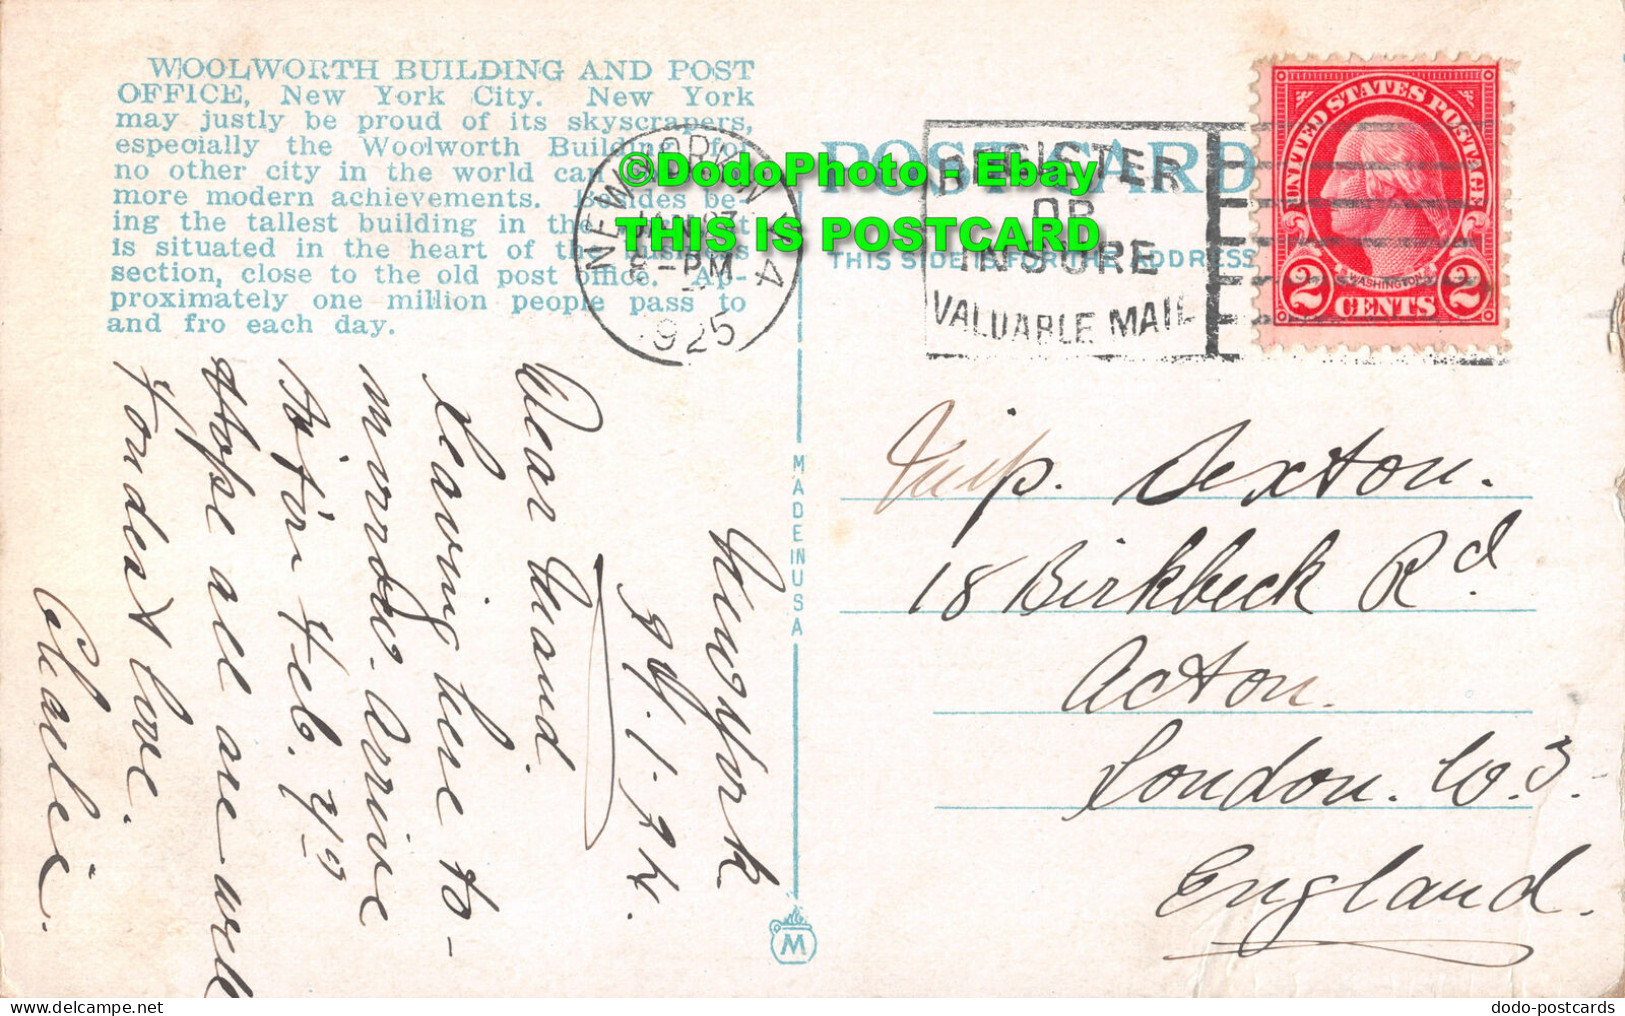 WOOLWORTH BUILDING AND POST
OFFICE, New York City. New York
may justly be proud of its skyscrapers,
especially the Woolworth Building, for
no other city in the world can
more modern achievements. Besides be-
ing the tallest building in the
is situated in the heart of the business
section, close to the old post office. Ap-
proximately one million people pass to
and fro each day.
NEW YORK, N.Y. 4
8-PM
1925
POST CARD
THIS SIDE IS FOR THE ADDRESS
REGISTER
OR
INSURE
VALUABLE MAIL
UNITED STATES POSTAGE
WASHINGTON
2 CENTS 2
©DodoPhoto - Ebay
THIS IS POSTCARD
MADE IN USA
M
New York
Dear Maud.
Leaving here to-
morrow. Arrive
Feb.
Hope all are well
Fondest love.
Charlie.
Sexton.
18 Birkbeck Rd
Acton.
London. W.3.
England.
dodo-postcards